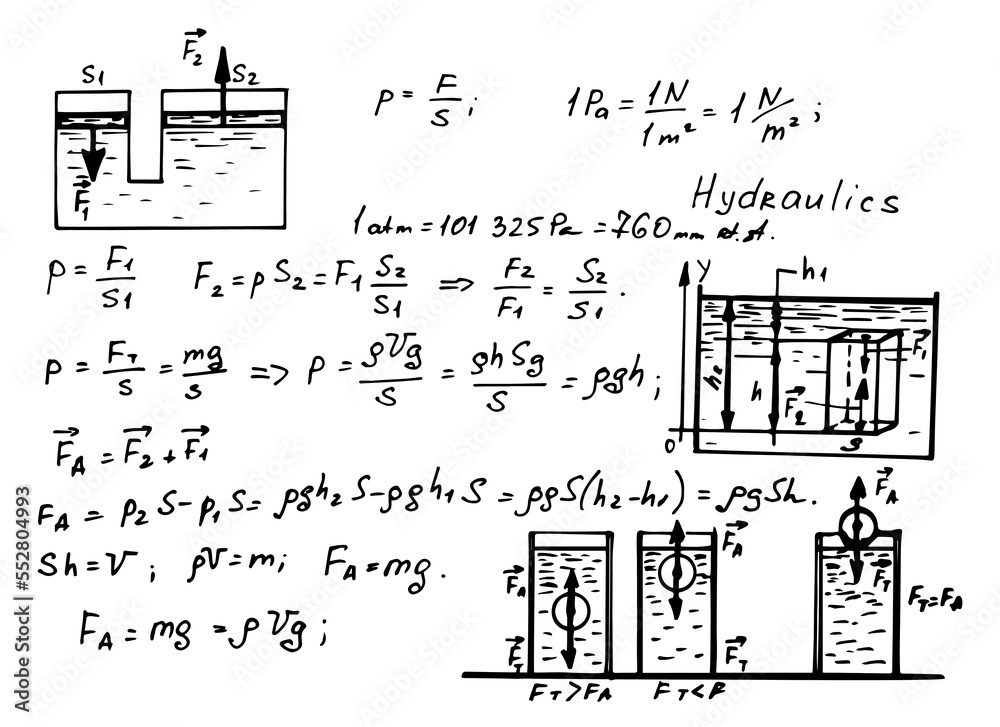 F₂
S₁ S₂
F₁
p = F/S ; 1 Pa = 1N/1m² = 1 N/m² ;
Hydraulics
1 atm = 101 325 Pa = 760 mm
p = F₁/S₁ F₂ = p S₂ = F₁ S₂/S₁ => F₂/F₁ = S₂/S₁ .
y h₁
h₂ h F₁ F₂
0 S
p = F_T/S = mg/S => p = ρVg/S = ρhSg/S = ρgh ;
F_A = F₂ + F₁
F_A = p₂ S - p₁ S = ρgh₂ S - ρgh₁ S = ρgS(h₂-h₁) = ρgSh .
Sh = V ; ρV = m ; F_A = mg .
F_A = mg = ρVg ;
F_A F_T
F_A F_T
F_A F_T
F_T > F_A
F_T = F_A
Adobe Stock | #552804993